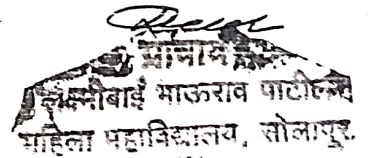 लक्ष्मीबाई भाऊराव पाटील
महिला महाविद्यालय, सोलापूर.